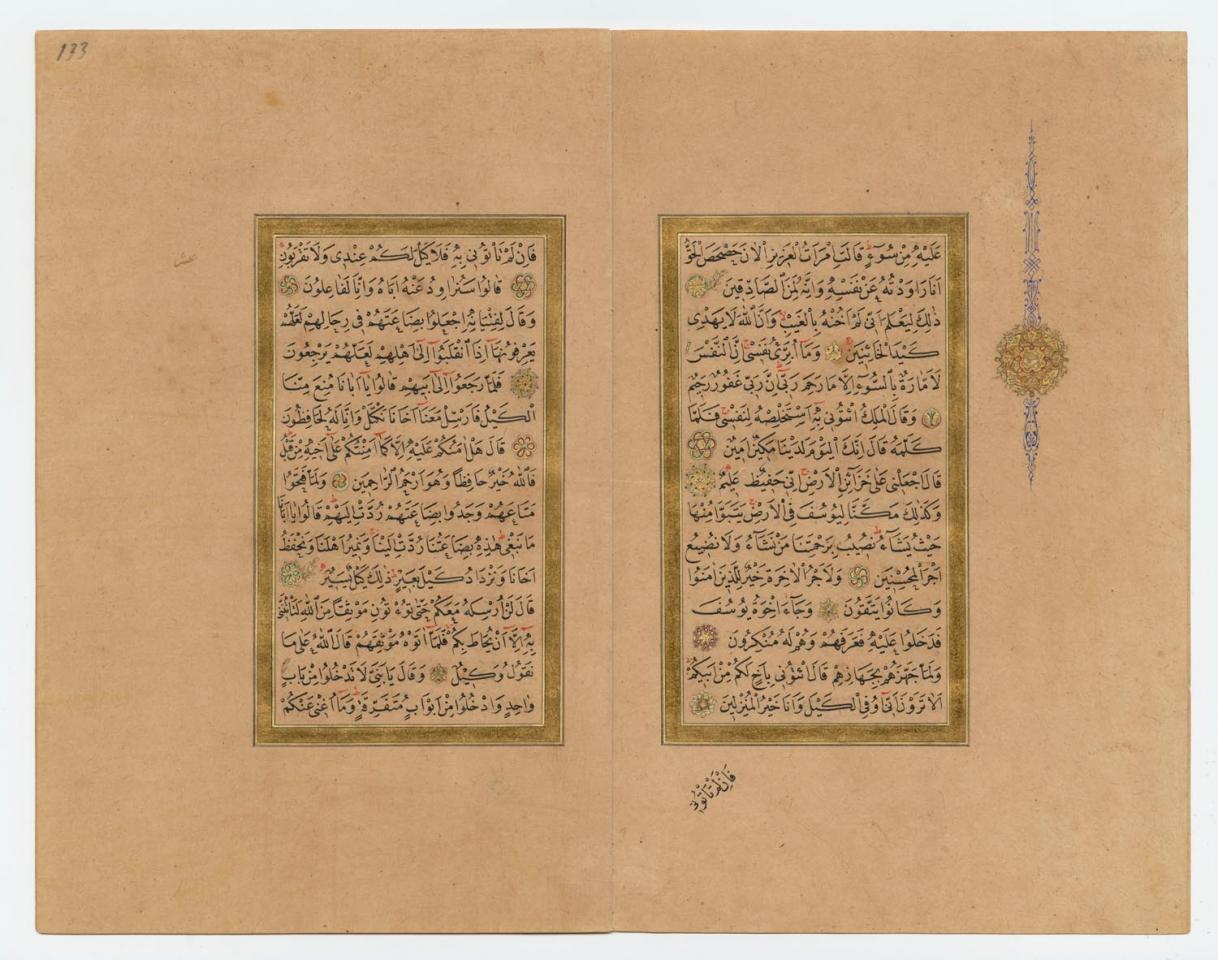 عَلَيْهِ مِنْ سُوءٍ قَالَتِ امْرَاَتُ الْعَزِيزِ الْاٰنَ حَصْحَصَ الْحَقُّ
اَنَا رَاوَدْتُهُ عَنْ نَفْسِهِ وَاِنَّهُ لَمِنَ الصَّادِقِينَ
ذٰلِكَ لِيَعْلَمَ اَنِّى لَمْ اَخُنْهُ بِالْغَيْبِ وَاَنَّ اللّٰهَ لَا يَهْدِى
كَيْدَ الْخَائِنِينَ وَمَا اُبَرِّئُ نَفْسِى اِنَّ النَّفْسَ
لَاَمَّارَةٌ بِالسُّوءِ اِلَّا مَا رَحِمَ رَبِّى اِنَّ رَبِّى غَفُورٌ رَحِيمٌ
وَقَالَ الْمَلِكُ ائْتُونِى بِهِ اَسْتَخْلِصْهُ لِنَفْسِى فَلَمَّا
كَلَّمَهُ قَالَ اِنَّكَ الْيَوْمَ لَدَيْنَا مَكِينٌ اَمِينٌ
قَالَ اجْعَلْنِى عَلٰى خَزَائِنِ الْاَرْضِ اِنِّى حَفِيظٌ عَلِيمٌ
وَكَذٰلِكَ مَكَّنَّا لِيُوسُفَ فِى الْاَرْضِ يَتَبَوَّاُ مِنْهَا
حَيْثُ يَشَاءُ نُصِيبُ بِرَحْمَتِنَا مَنْ نَشَاءُ وَلَا نُضِيعُ
اَجْرَ الْمُحْسِنِينَ وَلَاَجْرُ الْاٰخِرَةِ خَيْرٌ لِلَّذِينَ اٰمَنُوا
وَكَانُوا يَتَّقُونَ وَجَاءَ اِخْوَةُ يُوسُفَ
فَدَخَلُوا عَلَيْهِ فَعَرَفَهُمْ وَهُمْ لَهُ مُنْكِرُونَ
وَلَمَّا جَهَّزَهُمْ بِجَهَازِهِمْ قَالَ ائْتُونِى بِاَخٍ لَكُمْ مِنْ اَبِيكُمْ
اَلَا تَرَوْنَ اَنِّى اُوفِى الْكَيْلَ وَاَنَا خَيْرُ الْمُنْزِلِينَ
فَاِنْ لَمْ تَاْتُونِى
133
فَاِنْ لَمْ تَاْتُونِى بِهِ فَلَا كَيْلَ لَكُمْ عِنْدِى وَلَا تَقْرَبُونِ
قَالُوا سَنُرَاوِدُ عَنْهُ اَبَاهُ وَاِنَّا لَفَاعِلُونَ
وَقَالَ لِفِتْيَانِهِ اجْعَلُوا بِضَاعَتَهُمْ فِى رِحَالِهِمْ لَعَلَّهُمْ
يَعْرِفُونَهَا اِذَا انْقَلَبُوا اِلٰى اَهْلِهِمْ لَعَلَّهُمْ يَرْجِعُونَ
فَلَمَّا رَجَعُوا اِلٰى اَبِيهِمْ قَالُوا يَا اَبَانَا مُنِعَ مِنَّا
الْكَيْلُ فَاَرْسِلْ مَعَنَا اَخَانَا نَكْتَلْ وَاِنَّا لَهُ لَحَافِظُونَ
قَالَ هَلْ اٰمَنُكُمْ عَلَيْهِ اِلَّا كَمَا اَمِنْتُكُمْ عَلٰى اَخِيهِ مِنْ قَبْلُ
فَاللّٰهُ خَيْرٌ حَافِظًا وَهُوَ اَرْحَمُ الرَّاحِمِينَ وَلَمَّا فَتَحُوا
مَتَاعَهُمْ وَجَدُوا بِضَاعَتَهُمْ رُدَّتْ اِلَيْهِمْ قَالُوا يَا اَبَانَا
مَا نَبْغِى هٰذِهِ بِضَاعَتُنَا رُدَّتْ اِلَيْنَا وَنَمِيرُ اَهْلَنَا وَنَحْفَظُ
اَخَانَا وَنَزْدَادُ كَيْلَ بَعِيرٍ ذٰلِكَ كَيْلٌ يَسِيرٌ
قَالَ لَنْ اُرْسِلَهُ مَعَكُمْ حَتّٰى تُؤْتُونِ مَوْثِقًا مِنَ اللّٰهِ لَتَاْتُنَّنِى
بِهِ اِلَّا اَنْ يُحَاطَ بِكُمْ فَلَمَّا اٰتَوْهُ مَوْثِقَهُمْ قَالَ اللّٰهُ عَلٰى مَا
نَقُولُ وَكِيلٌ وَقَالَ يَا بَنِىَّ لَا تَدْخُلُوا مِنْ بَابٍ
وَاحِدٍ وَادْخُلُوا مِنْ اَبْوَابٍ مُتَفَرِّقَةٍ وَمَا اُغْنِى عَنْكُمْ